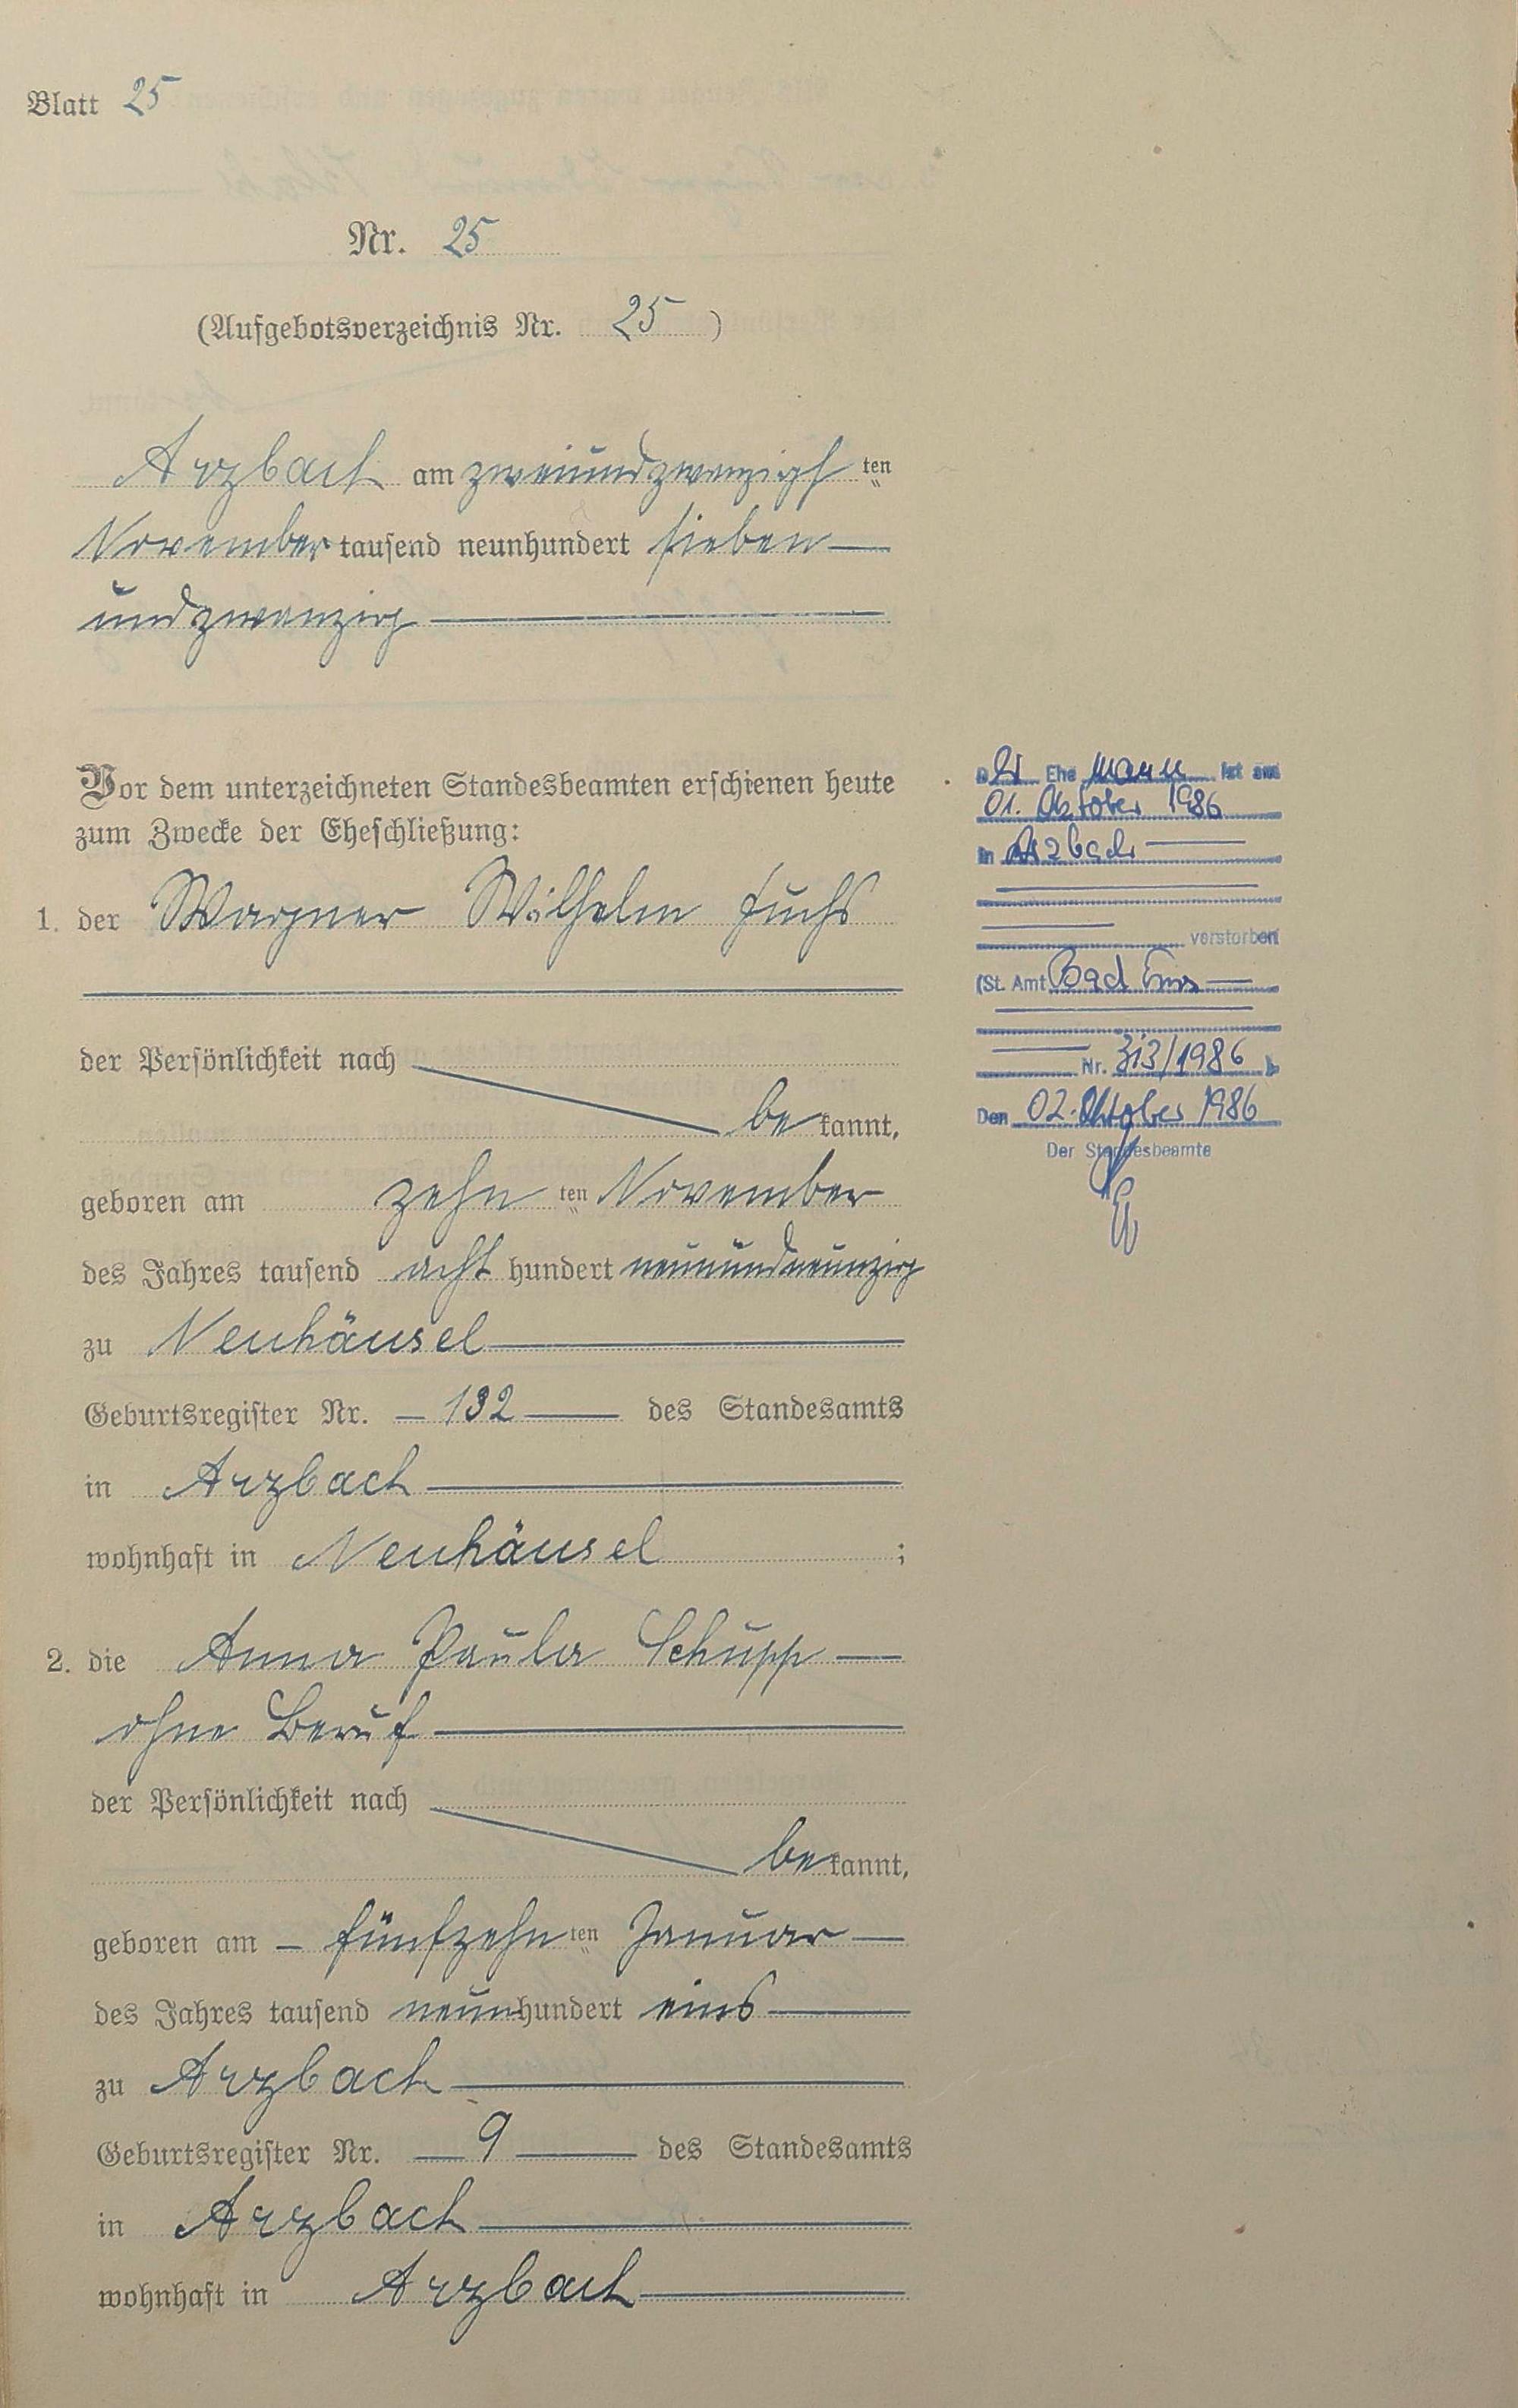 Blatt 25
Nr. 25
(Aufgebotsverzeichnis Nr. 25)
Arzbach am zweiundzwanzigsten
November tausend neunhundert sieben
undzwanzig
Vor dem unterzeichneten Standesbeamten erschienen heute
zum Zwecke der Eheschließung:
1. der Wagner Wilhelm Fuchs
der Persönlichkeit nach
bekannt,
geboren am zehnten November
des Jahres tausend acht hundert neunundneunzig
zu Neuhäusel
Geburtsregister Nr. 132 des Standesamts
in Arzbach
wohnhaft in Neuhäusel ;
2. die Anna Paula Schupp
ohne Beruf
der Persönlichkeit nach
bekannt,
geboren am fünfzehnten Januar
des Jahres tausend neunhundert eins
zu Arzbach
Geburtsregister Nr. 9 des Standesamts
in Arzbach
wohnhaft in Arzbach
Der Ehemann ist am
01. Oktober 1986
in Arzbach
verstorben
(St. Amt Bad Ems
Nr. 313/1986 )
Den 02. Oktober 1986
Der Standesbeamte